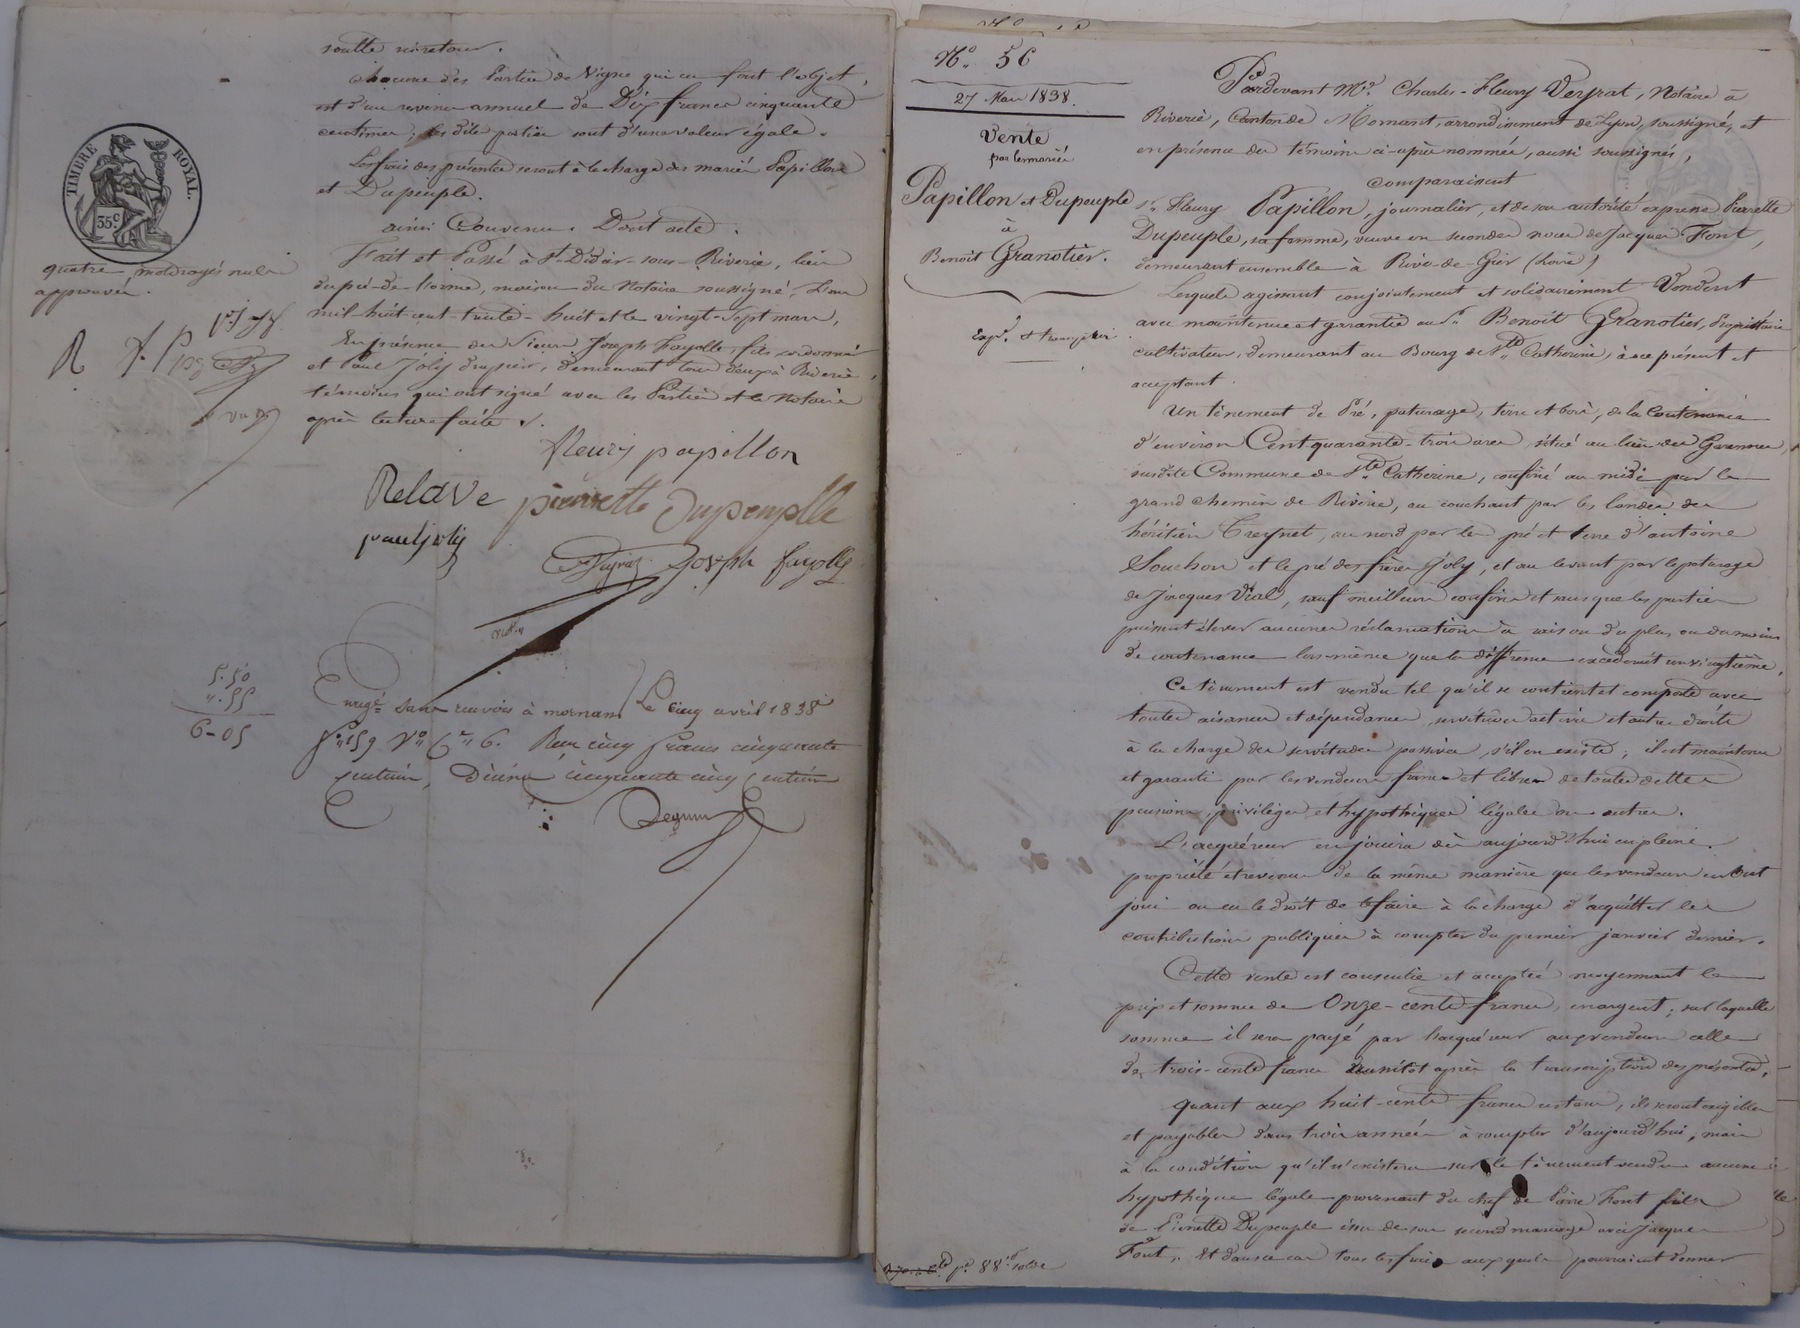 soulte ni retour.
Chacune des Parties de Vigne qui en font l'objet,
est d'un revenu annuel de Dix francs cinquante
centimes ; les dites parties sont d'une valeur égale.
Les frais des présentes seront à la charge des mariés Papillon
et Dupeuple.
ainsi Convenu. Dont acte.
Fait et Passé à St-Didier-sous-Riverie, lieu
du pié-de-l'orme, maison du Notaire soussigné, L'an
mil-huit-cent-trente-huit et le vingt-sept mars,
En présence des Sieurs Joseph Fayolle, fils cordonnier
et Paul Joly drapier, demeurant tous deux à Riverie,
témoins qui ont signé avec les Parties et le Notaire
après lecture faite.
TIMBRE ROYAL.
35c
quatre mots rayés nuls
approuvés.
fleury papillon
Relave pierrette Dupeuplle
paul joly
joseph fayolle
5.50
".55
6-05
Enregé sans renvois à mornant Le cinq avril 1838
fo 159 Vo Ce 6. Reçu cinq francs cinquante
centimes, Décime cinquante cinq centimes
No. 56
27 Mars 1838.
Vente
par les mariés
Papillon et Dupeuple
à
Benoit Granotier.
Pardevant Me. Charles-Fleury Veyrat, Notaire à
Riverie, Canton de Mornant, arrondissement de Lyon, soussigné, et
en présence des témoins ci-après nommés, aussi soussignés,
comparaissent
sr. Fleury Papillon, journalier, et de son autorité expresse Pierrette
Dupeuple, sa femme, veuve en secondes noces de Jacques Font,
demeurant ensemble à Rive-de-Gier (Loire)
Lesquels agissant conjointement et solidairement Vendent
avec maintenue et garantie au sr. Benoit Granotier, Propriétaire
cultivateur, demeurant au Bourg de Ste Catherine, à ce présent et
acceptant.
Un tènement de Pré, paturage, terre et bois, de la Contenance
d'environ Cent quarante-trois ares, situé au lieu des
susdite Commune de Ste Catherine, confiné au midi par le
grand chemin de Riverie, au couchant par les landes des
héritiers au nord par les pré et terre d'antoine
Souchon et le pré des frères Joly, et au levant par le paturage
de Jacques Vial, sauf meilleurs confins et sans que les parties
puissent élever aucunes réclamations à raison du plus ou du moins
de contenance lors même que la différence excéderait un vingtième.
Ce tènement est vendu tel qu'il se contient et comporte avec
toutes aisances et dépendances, servitudes actives et autres droits
à la charge des servitudes passives, s'il en existe ; il est maintenu
et garanti par les vendeurs francs et libres de toutes dettes
pensions, privilèges et hypothèques légales ou autres.
L'acquéreur en jouira dès aujourd'hui en pleine
propriété et revenus de la même manière que les vendeurs en ont
joui ou eu le droit de le faire à la charge d'acquitter les
contributions publiques à compter du premier janvier dernier.
Cette vente est consentie et acceptée moyennant le
prix et somme de Onze-cents francs, en argent ; sur laquelle
somme il sera payé par l'acquéreur aux vendeurs celle
de trois-cents francs aussitôt après la transcription des présentes,
quant aux huit-cents francs restans, ils seront exigibles
et payables dans trois années à compter d'aujourd'hui, mais
à la condition qu'il n'existera sur le tènement vendu aucune
hypothèque légale provenant du chef de Pierre Font fils
de Pierrette Dupeuple issu de son second mariage avec Jacques
Font, Et dans ce cas tous les frais auxquels pourraient donner